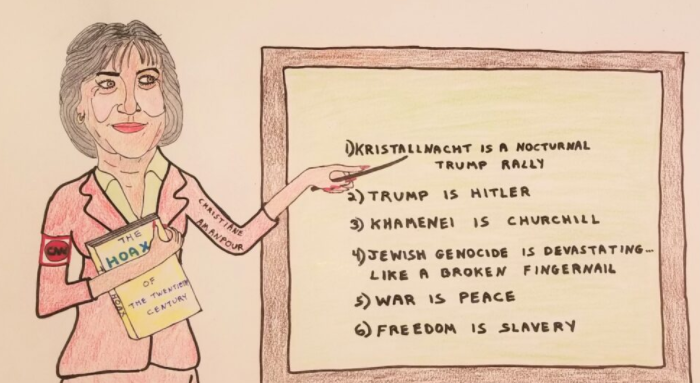 1) KRISTALLNACHT IS A NOCTURNAL
TRUMP RALLY
2) TRUMP IS HITLER
3) KHAMENEI IS CHURCHILL
4) JEWISH GENOCIDE IS DEVASTATING...
LIKE A BROKEN FINGERNAIL
5) WAR IS PEACE
6) FREEDOM IS SLAVERY
CHRISTIANE
AMANPOUR
CNN
THE
HOAX
OF
THE TWENTIETH
CENTURY
HOAX